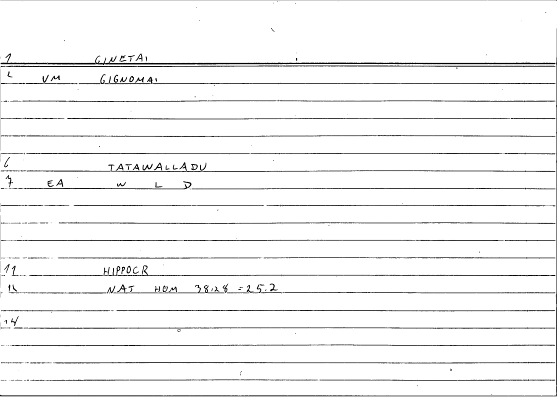 1 GINETAI
L VM GIGNOMAI
6 TATAWALLADU
7 EA W L D
11 HIPPOCR
12 NAT HOM 38.28 = 25.2
14